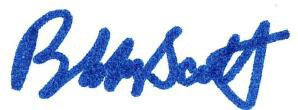 Bobby Scott